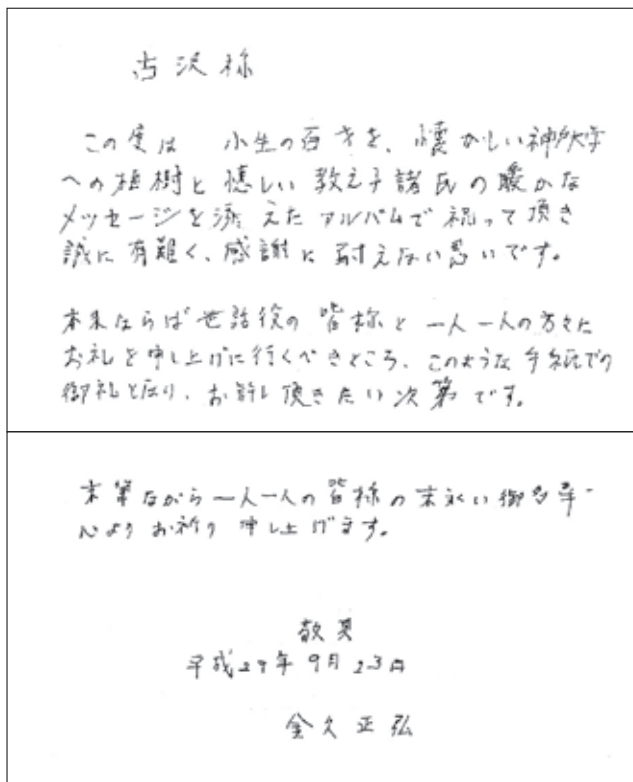 古沢様
この度は 小生の百才を、懐かしい神戸大学
への植樹と懐しい教え子諸氏の暖かな
メッセージを添えたアルバムで祝って頂き
誠に有難く、感謝に耐えない思いです。
本来ならば世話役の皆様と一人一人の方々に
お礼を申し上げに行くべきところ、このような手紙での
御礼となり、お許し頂きたい次第です。
末筆ながら一人一人の皆様の末永い御多幸
心よりお祈り申し上げます。
敬具
平成29年9月23日
金久正弘